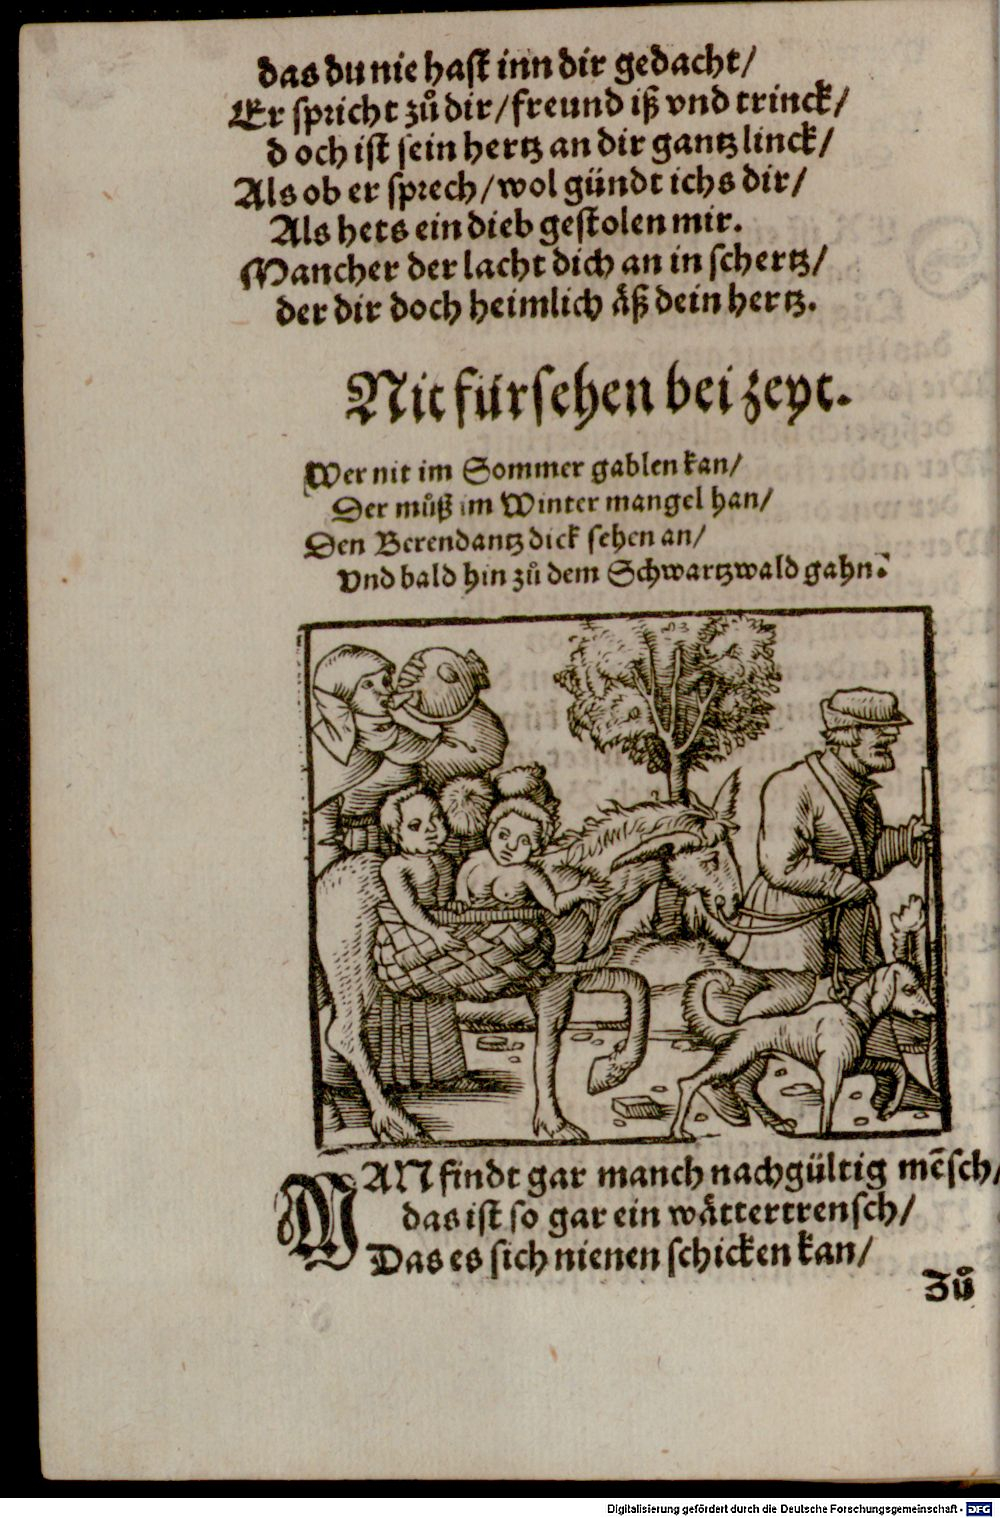 das du nie hast inn dir gedacht/
Er spricht zů dir/ freund iß vnd trinck/
doch ist sein hertz an dir gantz linck/
Als ob er sprech/ wol gündt ichs dir/
Als hets ein dieb gestolen mir.
Mancher der lacht dich an in schertz/
der dir doch heimlich äß dein hertz.
Nit fürsehen bei zeyt.
Wer nit im Sommer gablen kan/
Der můß im Winter mangel han/
Den Berendantz dick sehen an/
vnd bald hin zů dem Schwartzwald gahn.
MAN findt gar manch nachgültig mẽsch/
das ist so gar ein wättertrensch/
Das es sich nienen schicken kan/
Zů
Digitalisierung gefördert durch die Deutsche Forschungsgemeinschaft - DFG